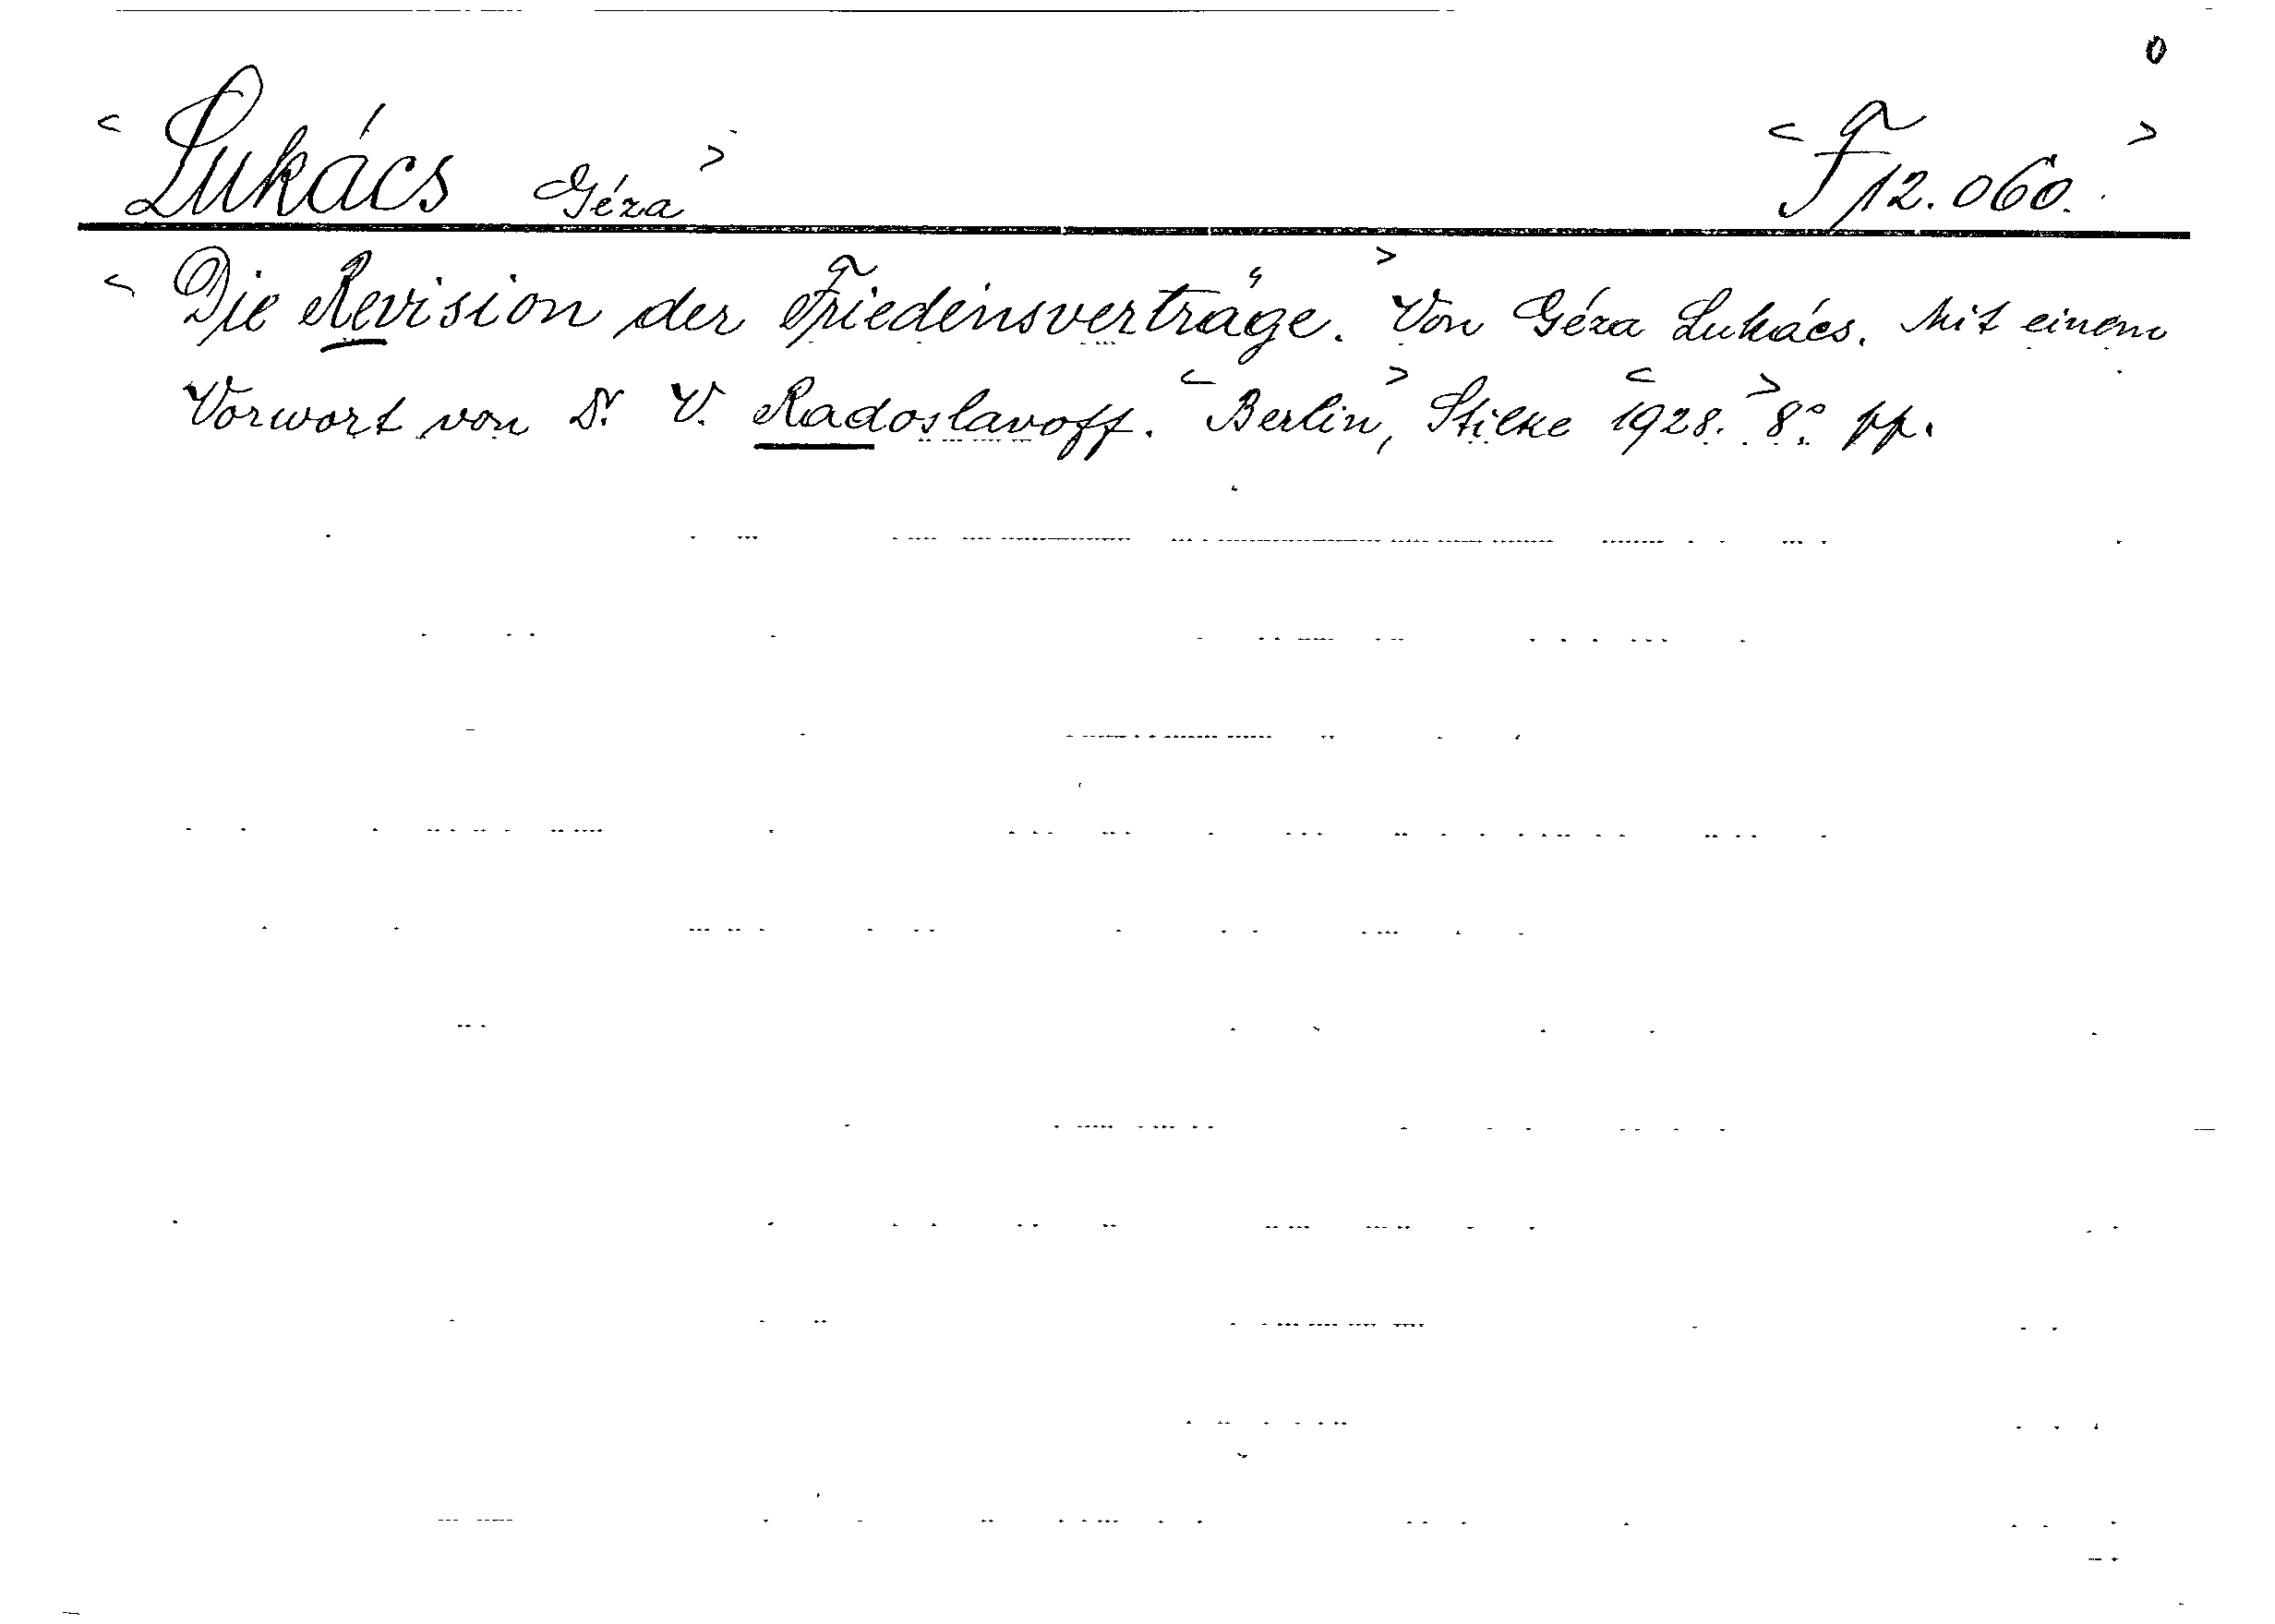 0
< Lukács Géza > < F 12.060. >
< Die Revision der Friedensverträge. > Von Géza Lukács. Mit einem
Vorwort von Dr. V. Radoslavoff. < Berlin, > Stilke < 1928. > 8° pp.